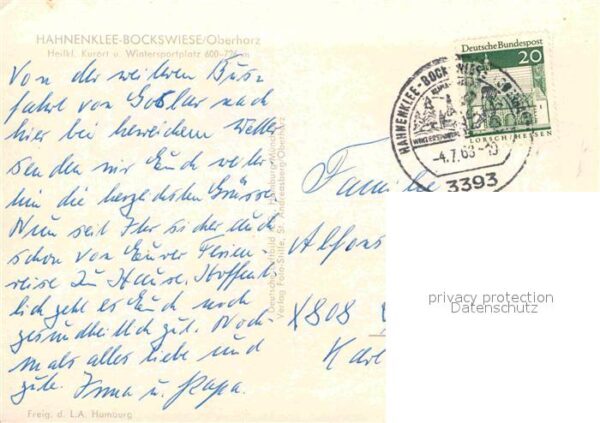 HAHNENKLEE-BOCKSWIESE/Oberharz
Heilkl. Kurort u. Wintersportplatz 600-726 m
Von der weiteren Bus-
fahrt von Goslar nach
hier bei herrlichem Wetter
senden wir Euch weiter-
hin die herzlichsten Grüsse
Nun seit Ihr sicher auch
schon von Eurer Ferien-
reise zu Hause. Hoffent-
lich geht es Euch noch
gesundheitlich gut. Noch-
mals alles liebe und
gute. Irma u. Papa.
Freig. d. L.A. Hamburg
Verlag Foto-Stille, St. Andreasberg-Oberharz
HAHNENKLEE-BOCKSWIESE
-4.7.68-10
3393
Deutsche Bundespost
20
LORSCH/HESSEN
Familie
Alfons
X808
Karl
privacy protection
Datenschutz